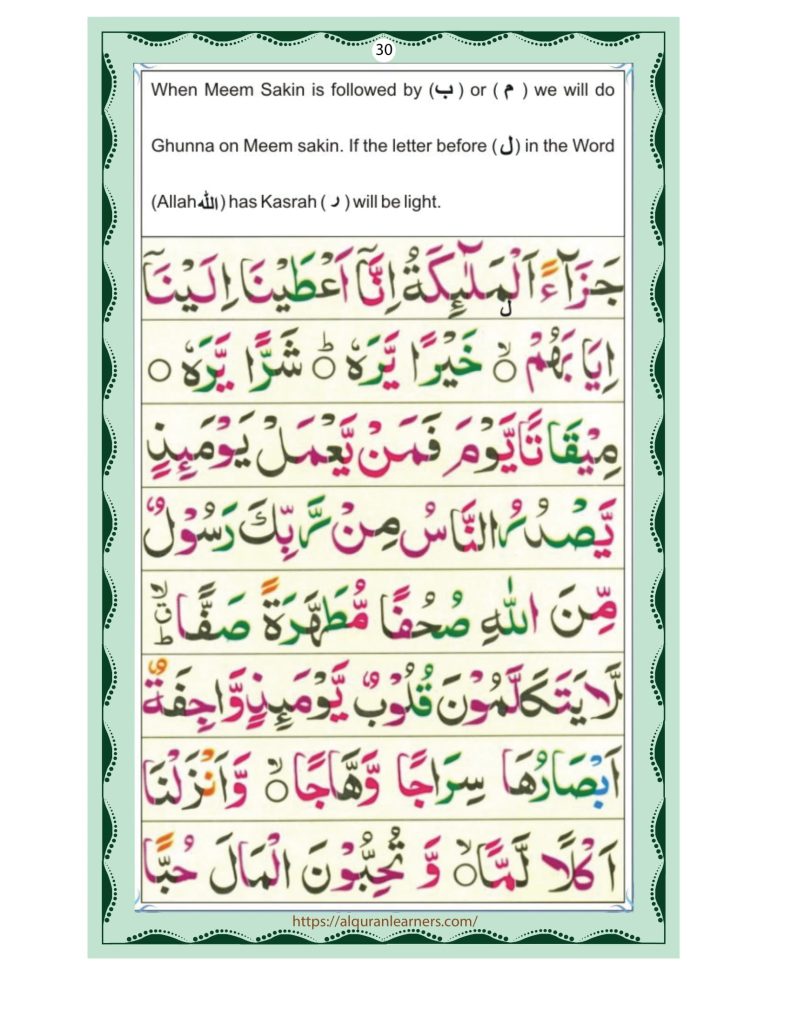 30
When Meem Sakin is followed by (ب) or (م) we will do
Ghunna on Meem sakin. If the letter before (ل) in the Word
(Allah الله) has Kasrah (ر) will be light.
جَزَآءً اَلْمَلٰٓئِكَةُ اِنَّآ اَعْطَيْنَا اِلَيْنَآ
اِيَا بَهُمْ ۙ○ خَيْرًا يَّرَهٗ ○ؕ شَرًّا يَّرَهٗ ○
مِيْقَاتًا يَّوْمَ فَمَنْ يَّعْمَلْ يَوْمَئِذٍ
يَّصْدُرُ النَّاسُ مِنْ رَّبِّكَ رَسُوْلٌ
مِّنَ اللّٰهِ صُحُفًا مُّطَهَّرَةً صَفًّا
لَّا يَتَكَلَّمُوْنَ قُلُوْبٌ يَّوْمَئِذٍ وَّاجِفَةٌ
اَبْصَارُهَا سِرَاجًا وَّهَّاجًا ○ۙ وَّاَنْزَلْنَا
اَكْلًا لَّمًّا ○ۙ وَّ تُحِبُّوْنَ الْمَالَ حُبًّا
https://alquranlearners.com/